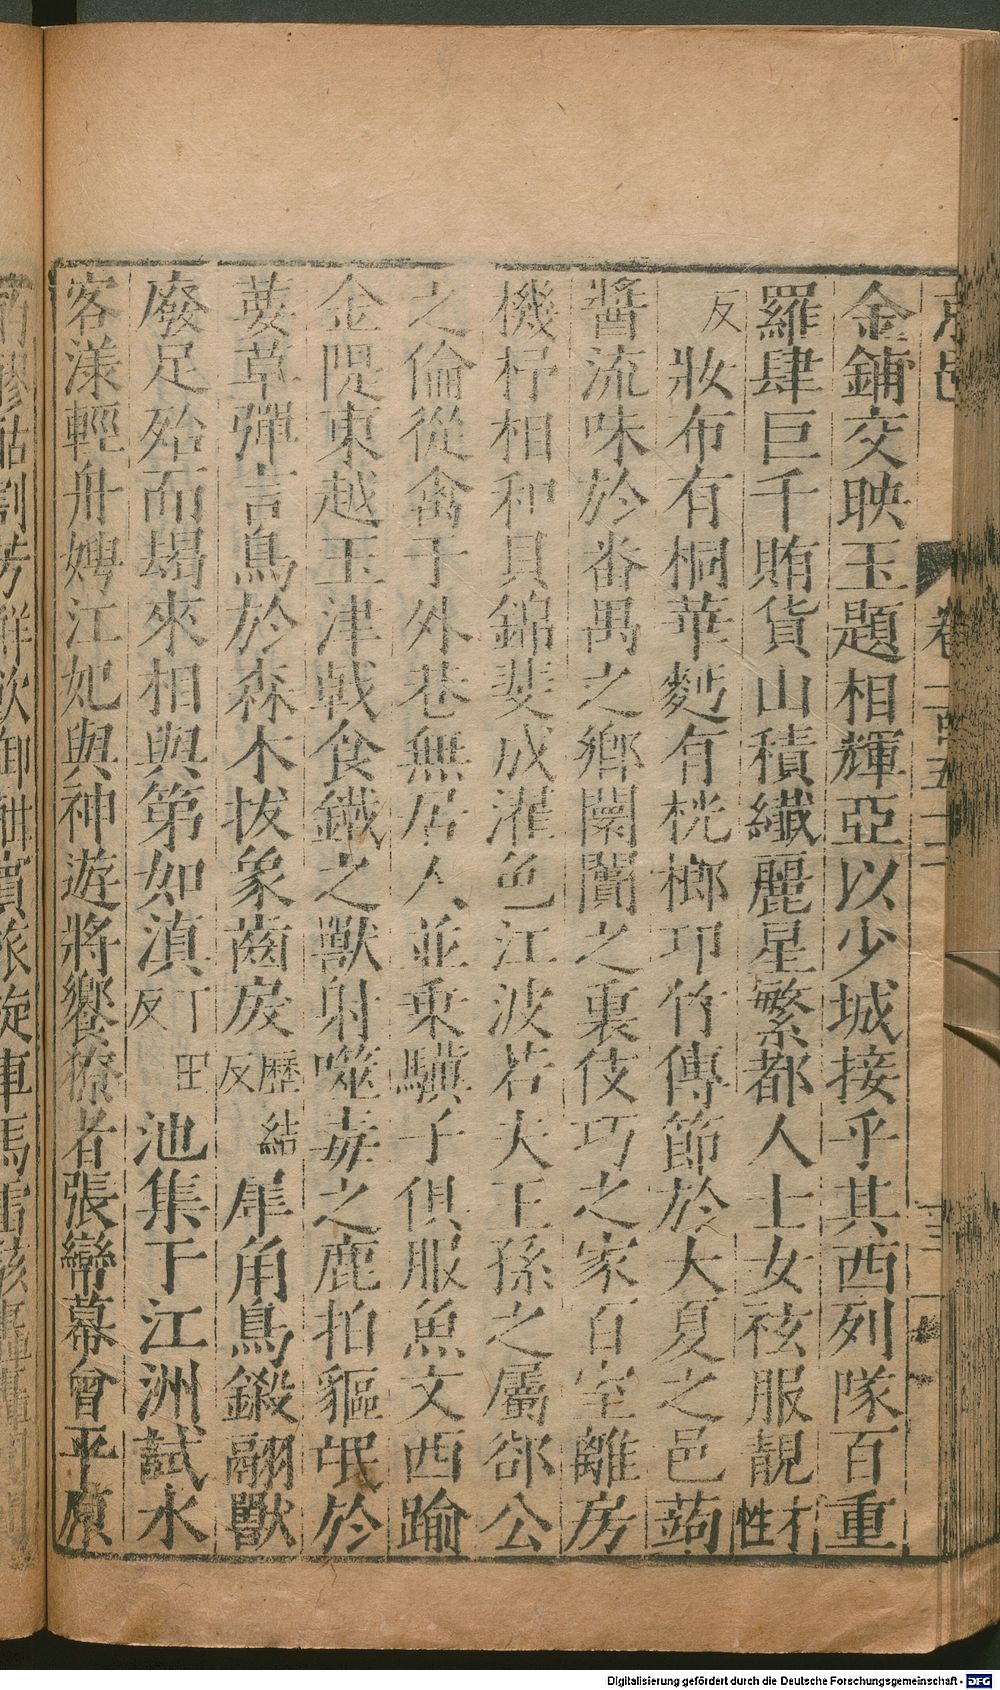 京邑 卷二百五十二
金鋪交映玉題相輝亞以少城接乎其西列隊百重
羅肆巨千賄貨山積纖麗星繁都人士女袨服靚才性
反妝布有桐華麫有桄榔邛竹傳節於大夏之邑蒟
醬流味於番禺之鄉闤闠之裏伎巧之家百室離房
機杼相和貝錦斐成濯色江波若夫王孫之屬郤公
之倫從禽于外巷無居人並乘驥子俱服魚文西踰
金隄東越玉津戟食鐵之獸射噬毒之鹿拍貙氓於
葽草彈言鳥於森木拔象齒戾歷結反犀角鳥鎩翮獸
廢足殆而朅來相與第如滇丁田反池集于江洲試水
客漾輕舟娉江妃與神遊將饗獠者張巒幕會平原
Digitalisierung gefördert durch die Deutsche Forschungsgemeinschaft - DFG